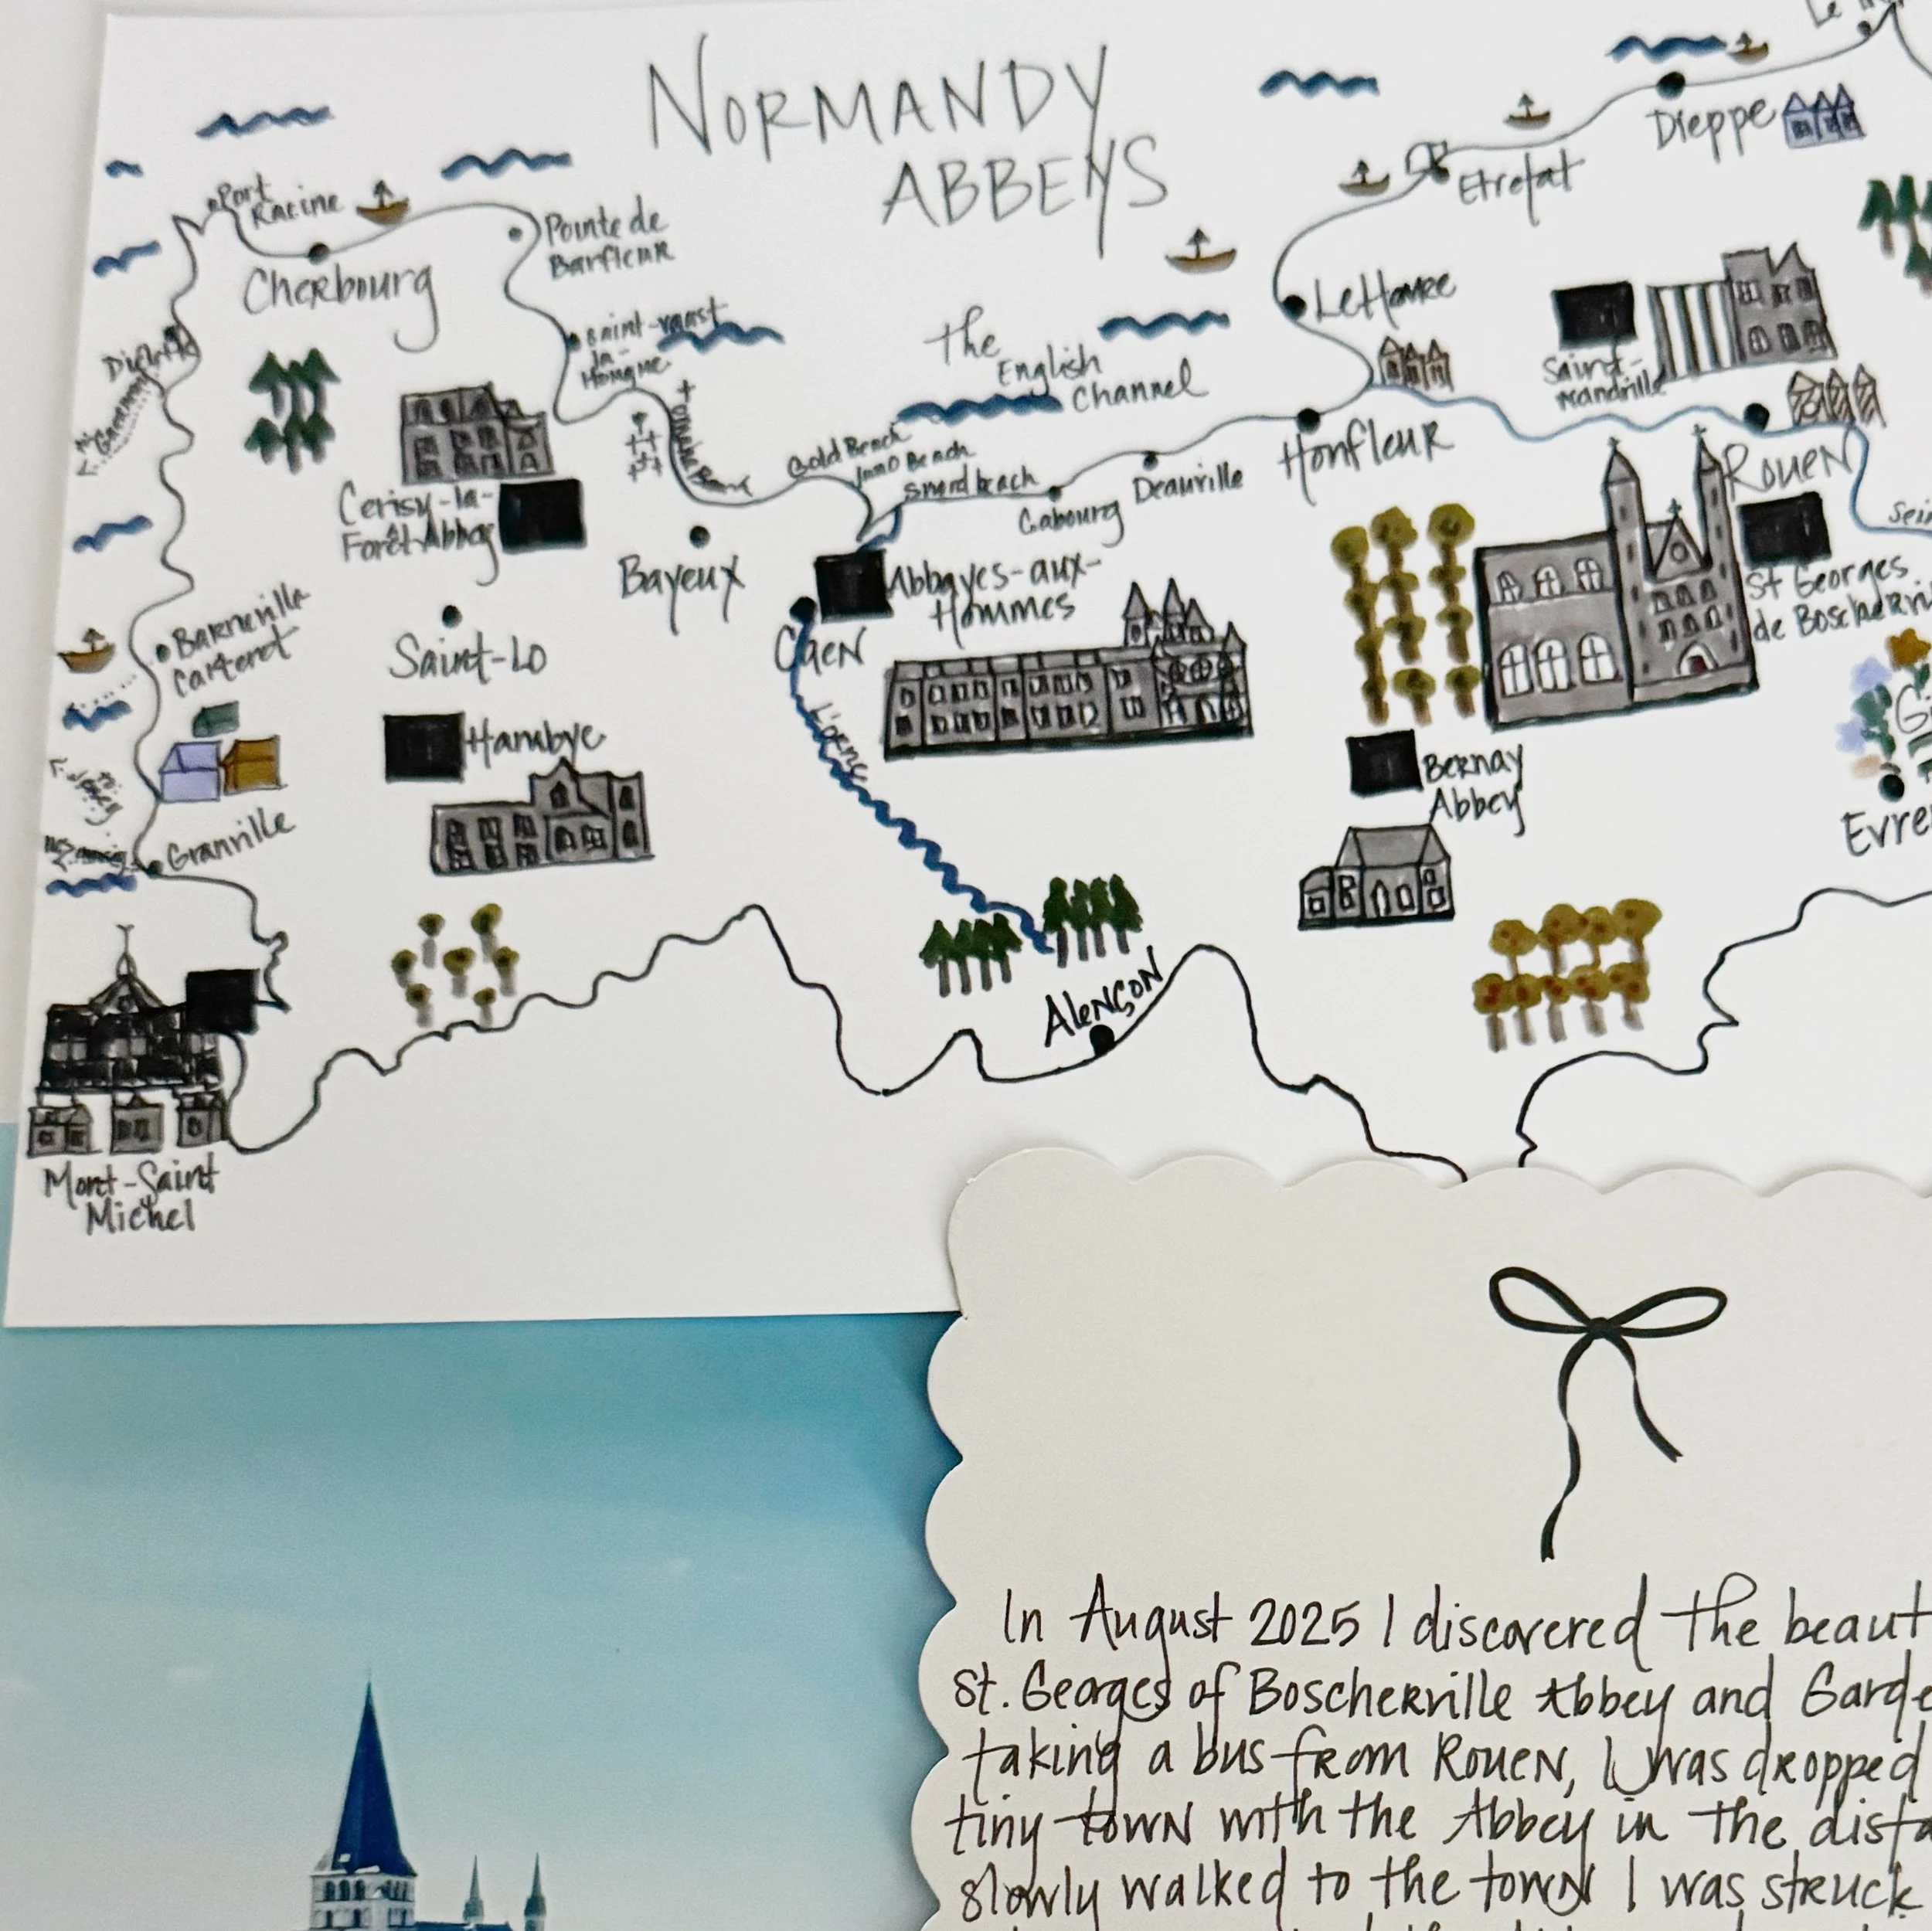 NORMANDY
ABBEYS
Dieppe
Etretat
Port
Racine
Pointe de
Barfleur
Cherbourg
LeHavre
Saint-vaast
la-
Hougue
The
English
Channel
Saint-
Wandrille
Gold Beach
Juno Beach
Sword beach
Omaha Beach
Cabourg
Deauville
Honfleur
ROUEN
Cerisy-la-
Forêt Abbey
Bayeux
Abbayes-aux-
Hommes
St Georges
Barneville
Carteret
Saint-Lo
CaeN
L'orne
Hambye
Bernay
Abbey
Granville
AleNÇoN
Mont-Saint
Michel
In August 2025 I discovered the
St. Georges of Boscherville Abbey and
taking a bus from RoueN, I was dropped
tiny towN with the Abbey in the
slowly walked to the towN I was struck